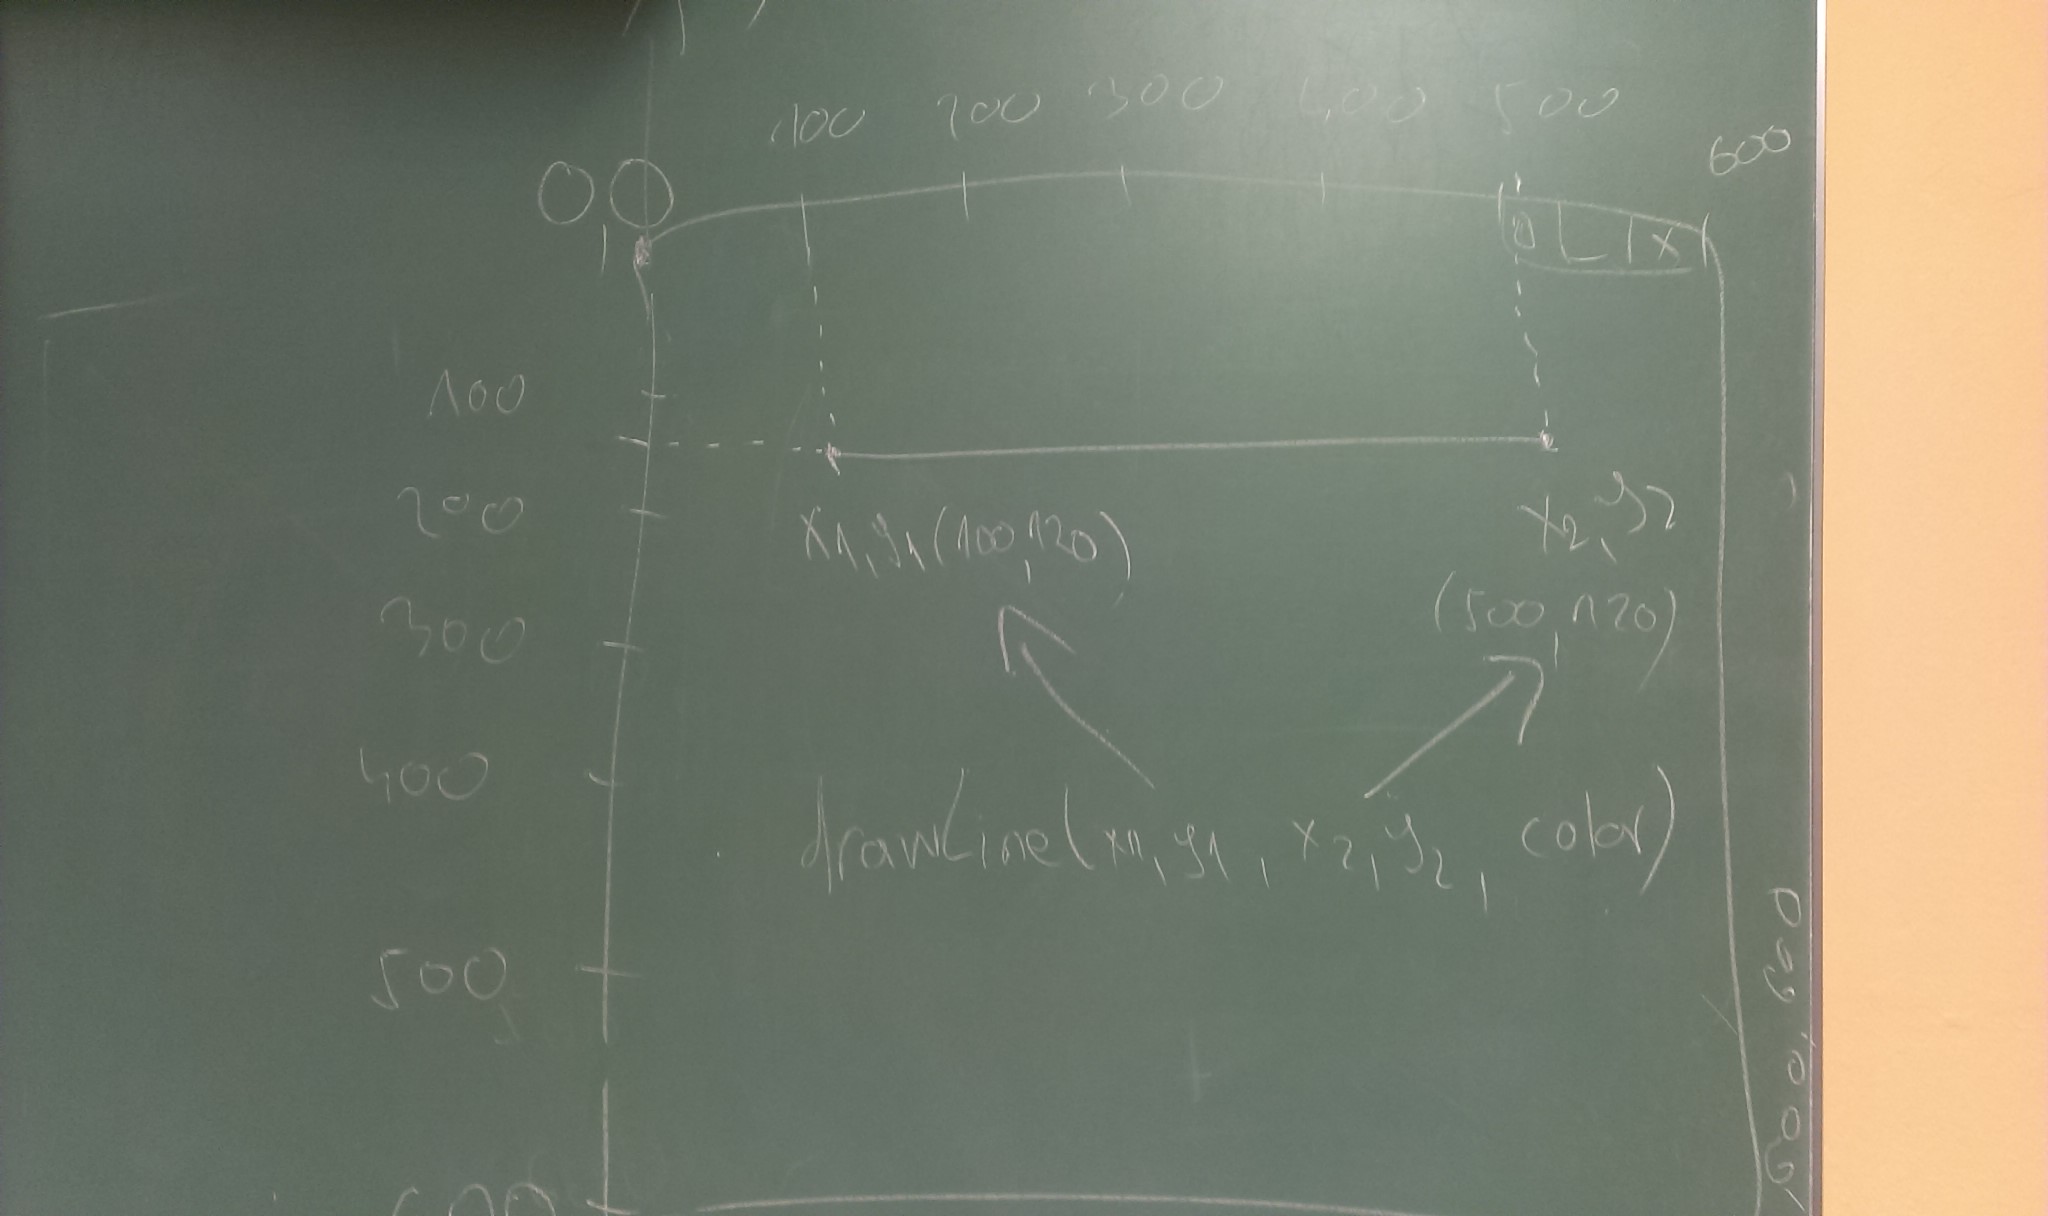 100 200 300 400 500 600
0,0
x
100
200
x1,y1(100,120)
x2,y2
(500,120)
300
400
drawLine(x1,y1, x2,y2, color)
500
600
600,600